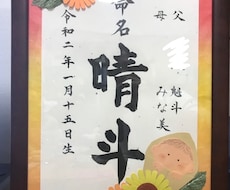 父 魁斗
母 みな美
命名
晴斗
令和二年一月十五日生